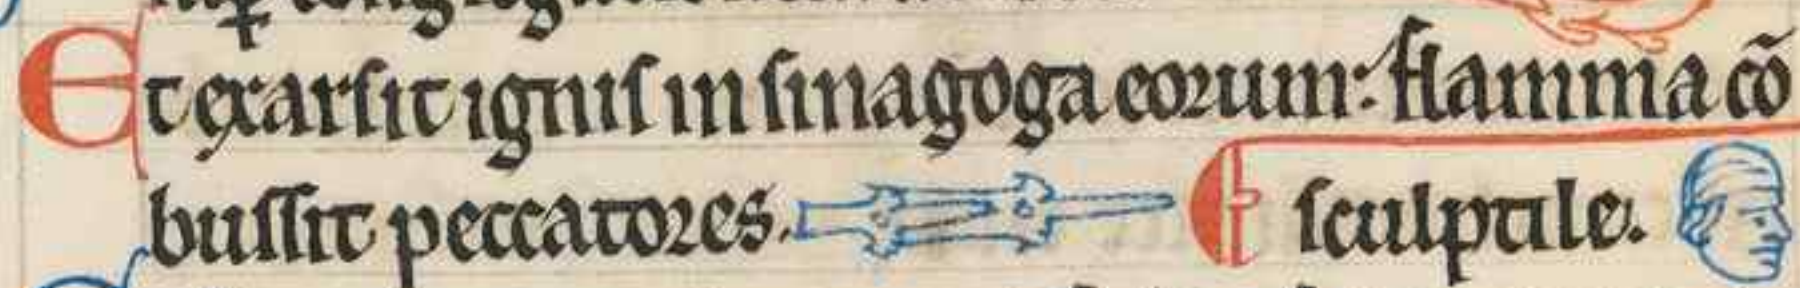 Et exarsit ignis in sinagoga eorum: flamma cõ
bussit peccatores. sculptile.